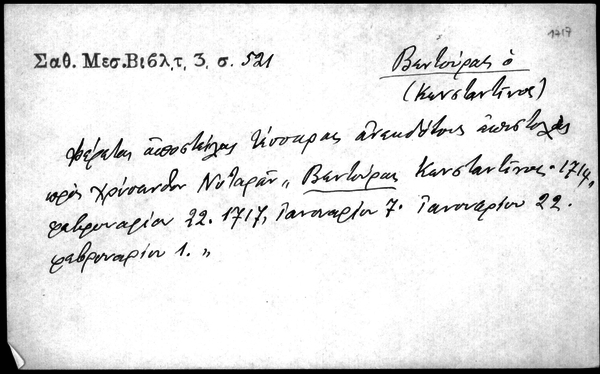 1717
Σαθ. Μεσ.Βιβλ,τ, 3, σ. 521
Βεντούρας ὁ
(Κωνσταντῖνος)
Φέρεται ἀποστείλας τέσσαρας ἀνεκδότους ἐπιστολὰς
πρὸς Χρύσανθον Νοταρᾶν „ Βεντούρας Κωνσταντῖνος. 1714,
φεβρουαρίου 22. 1717, ἰανουαρίου 7. ἰανουαρίου 22.
φεβρουαρίου 1. „